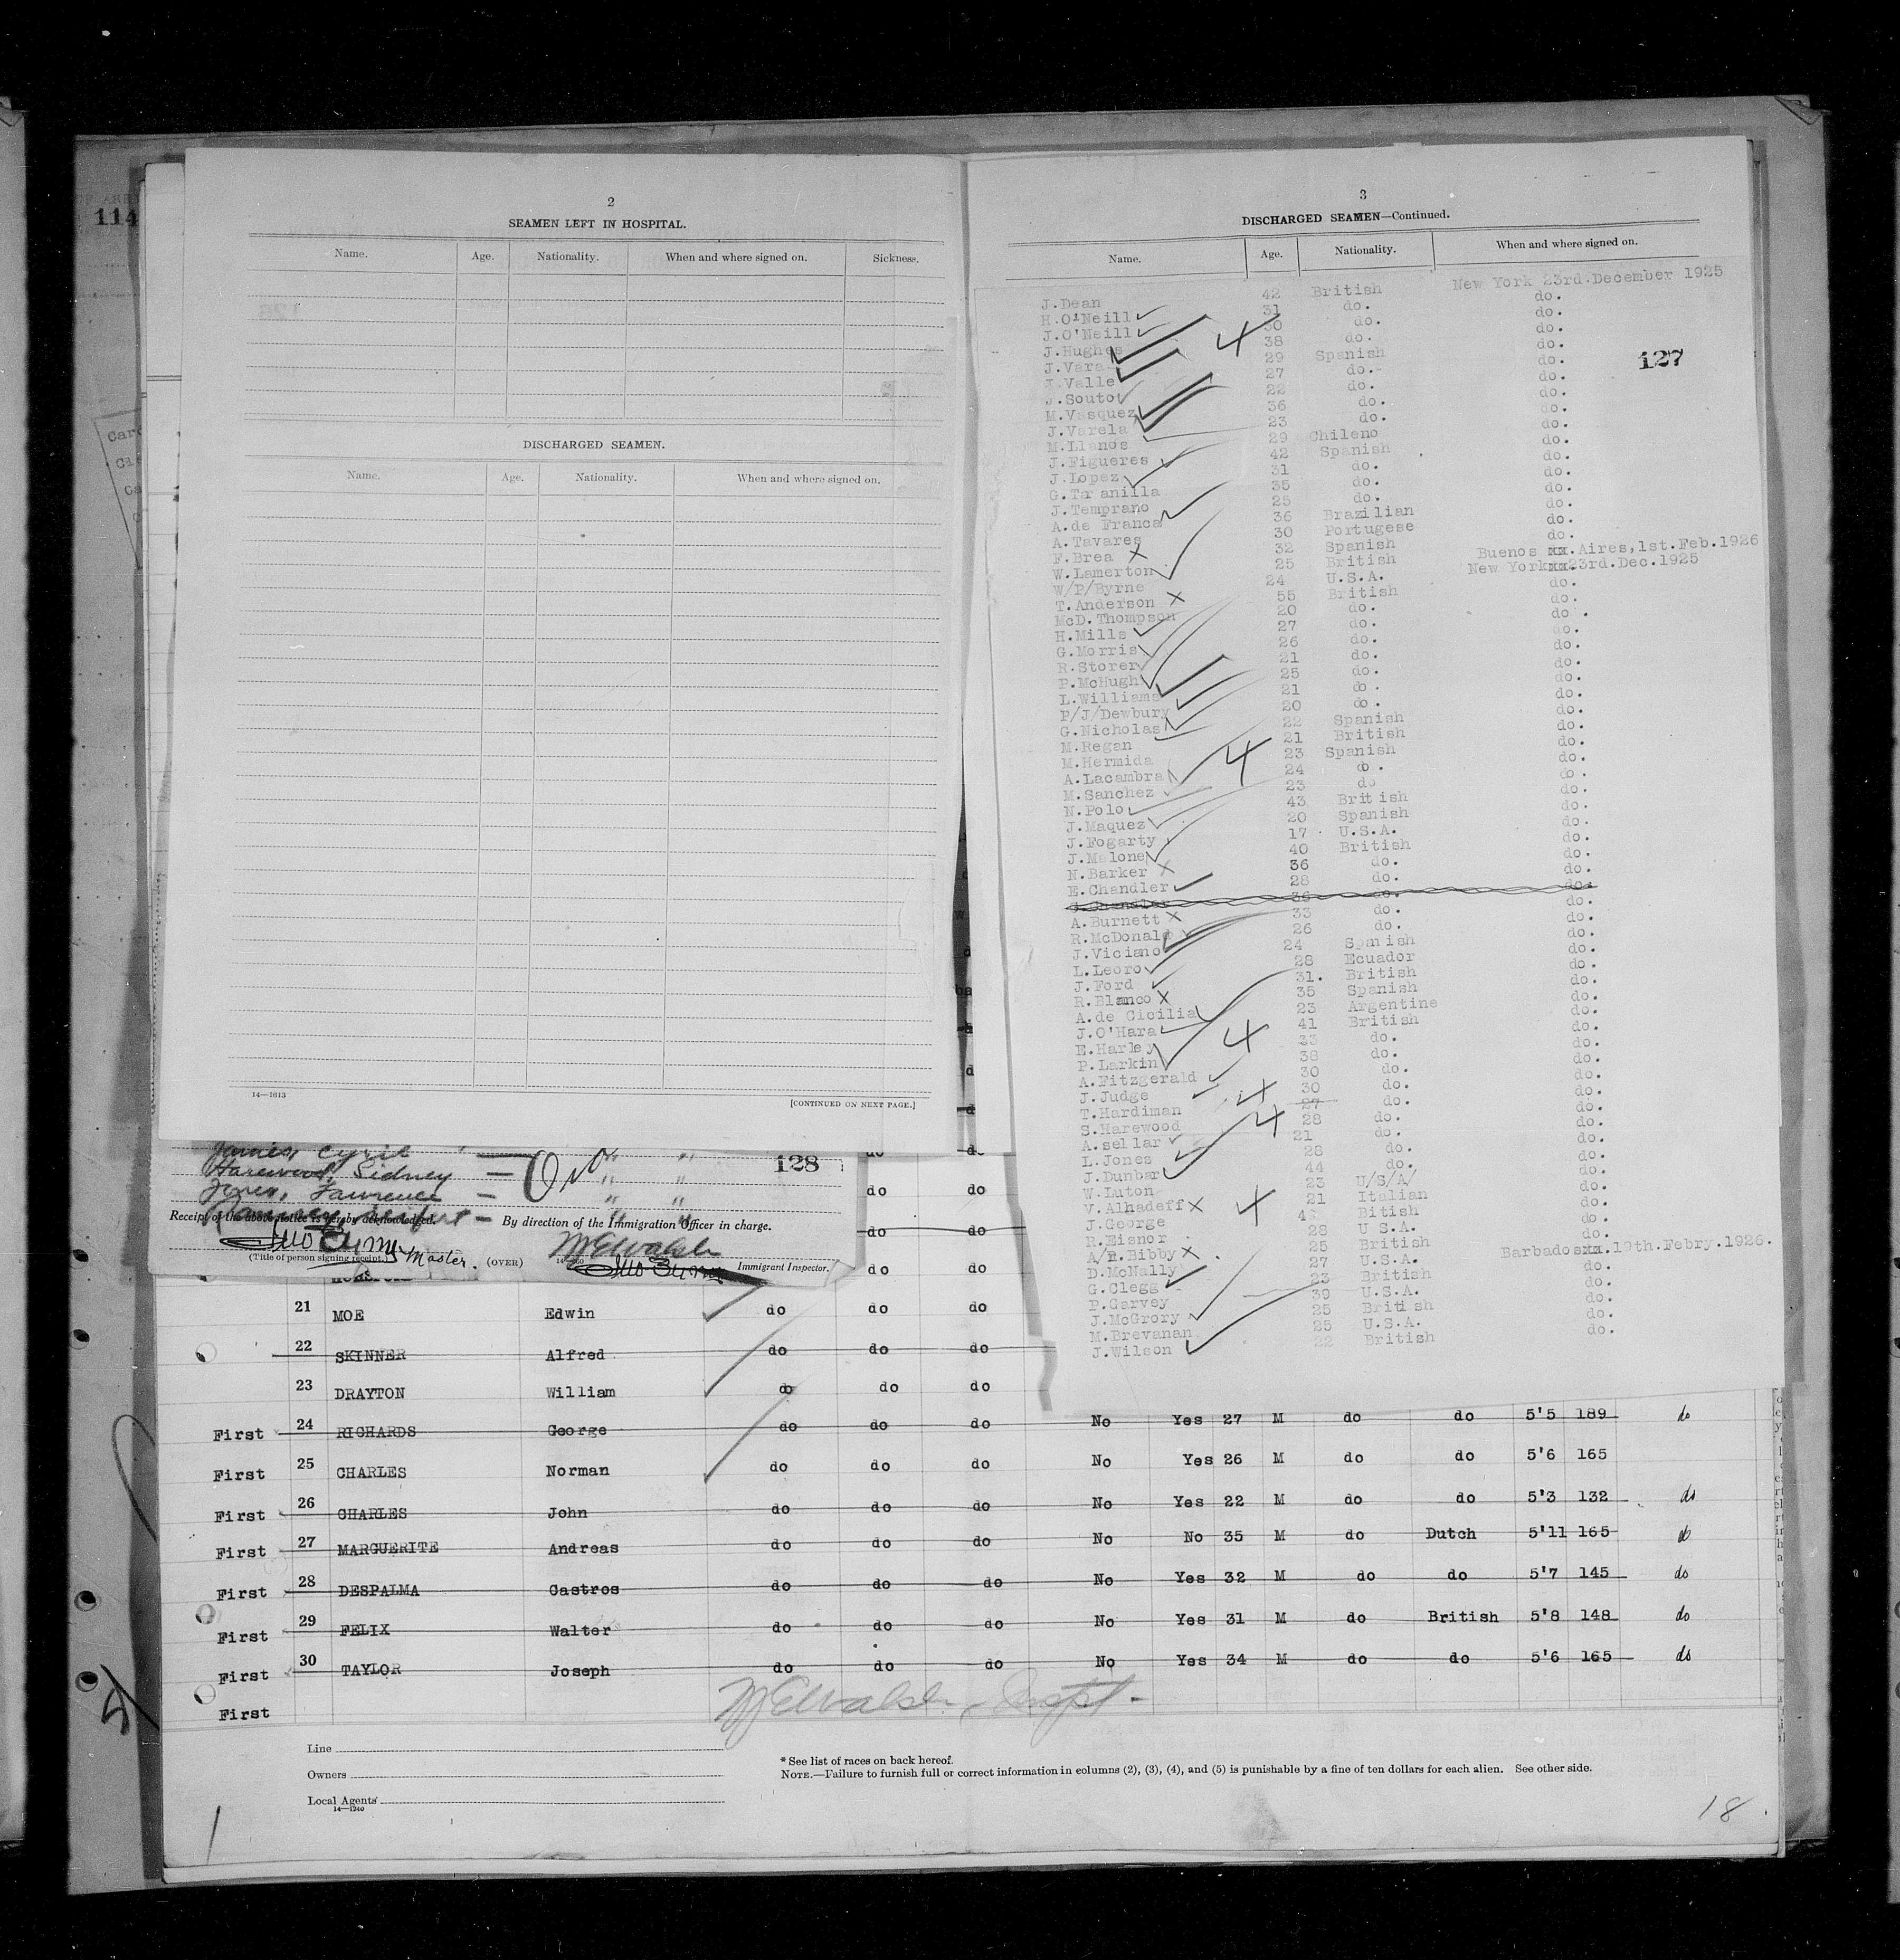 114
2
SEAMEN LEFT IN HOSPITAL.
Name. Age. Nationality. When and where signed on. Sickness.
DISCHARGED SEAMEN.
Name. Age. Nationality. When and where signed on.
14—1613
[CONTINUED ON NEXT PAGE.]
3
DISCHARGED SEAMEN—Continued.
Name. Age. Nationality. When and where signed on.
127
J.Dean 42 British New York 23rd.December 1925
H.O'Neill 31 do. do.
J.O'Neill 30 do. do.
J.Hughes 38 do. do.
J.Vara 29 Spanish do.
Valle 27 do. do.
J.Souto 22 do. do.
M.Vasquez 36 do. do.
J.Varela 23 do. do.
M.Llanos 29 Chileno do.
J.Figueres 42 Spanish do.
J.Lopez 31 do. do.
G.Taranilla 35 do. do.
J.Temprano 25 do. do.
A.de Franca 36 Brazilian do.
A.Tavares 30 Portugese do.
F.Brea 32 Spanish Buenos xx.Aires,1st.Feb.1926
W.Lamerton 25 British New York xx 23rd.Dec.1925
W/P/Byrne 24 U.S.A. do.
T.Anderson 55 British do.
McD.Thompson 20 do. do.
H.Mills 27 do. do.
G.Morris 26 do. do.
R.Storer 21 do. do.
P.McHugh 25 do. do.
L.Williams 21 do. do.
P/J/Dewbury 20 do. do.
G.Nicholas 22 Spanish do.
M.Regan 21 British do.
M.Hermida 23 Spanish do.
A.Lacambra 24 do. do.
M.Sanchez 23 do do.
N.Polo 43 British do.
J.Maquez 20 Spanish do.
J.Fogarty 17 U.S.A. do.
J.Malone 40 British do.
N.Barker 36 do. do.
E.Chandler 28 do. do.
36 do. do.
A.Burnett 33 do. do.
R.McDonald 26 do. do.
J.Viciano 24 Spanish do.
L.Leoro 28 Ecuador do.
J.Ford 31. British do.
R.Blanco 35 Spanish do.
A.de Cicilia 23 Argentine do.
J.O'Hara 41 British do.
E.Harley 33 do. do.
P.Larkin 38 do. do.
A.Fitzgerald 30 do. do.
J.Judge 30 do. do.
T.Hardiman 27 do. do.
S.Harewood 28 do. do.
A.sellar 21 do. do.
L.Jones 28 do. do.
J.Dunbar 44 do. do.
W.Luton 23 U/S/A/ do.
V.Alhadeff 21 Italian do.
J.George Bitish do.
R.Eisnor 28 U S.A. do.
A/R.Bibby 25 British Barbados xx.19th.Febry.1926.
D.McNally 27 U.S.A. do.
G.Clegg 23 British do.
P.Garvey 39 U.S.A. do.
J.McGrory 25 British do.
M.Brevanan 25 U.S.A. do.
J.Wilson 22 British do.
James, Cyril " "
128
Harewood, Sidney " "
Jones, Lawrence " "
Receipt of the above notice is hereby acknowledged. By direction of the Immigration Officer in charge.
Master.
(Title of person signing receipt.) (OVER) Immigrant Inspector.
21 MOE Edwin do do do
22 SKINNER Alfred do do do
23 DRAYTON William do do do
First 24 RICHARDS George do do do No Yes 27 M do do 5'5 189 do
First 25 CHARLES Norman do do do No Yes 26 M do do 5'6 165
First 26 CHARLES John do do do No Yes 22 M do do 5'3 132 do
First 27 MARGUERITE Andreas do do do No No 35 M do Dutch 5'11 165 do
First 28 DESPALMA Castros do do do No Yes 32 M do do 5'7 145 do
First 29 FELIX Walter do do do No Yes 31 M do British 5'8 148 do
First 30 TAYLOR Joseph do do do No Yes 34 M do do 5'6 165 do
First
Line
Owners
Local Agents
14—1240
* See list of races on back hereof.
NOTE.—Failure to furnish full or correct information in columns (2), (3), (4), and (5) is punishable by a fine of ten dollars for each alien. See other side.
18